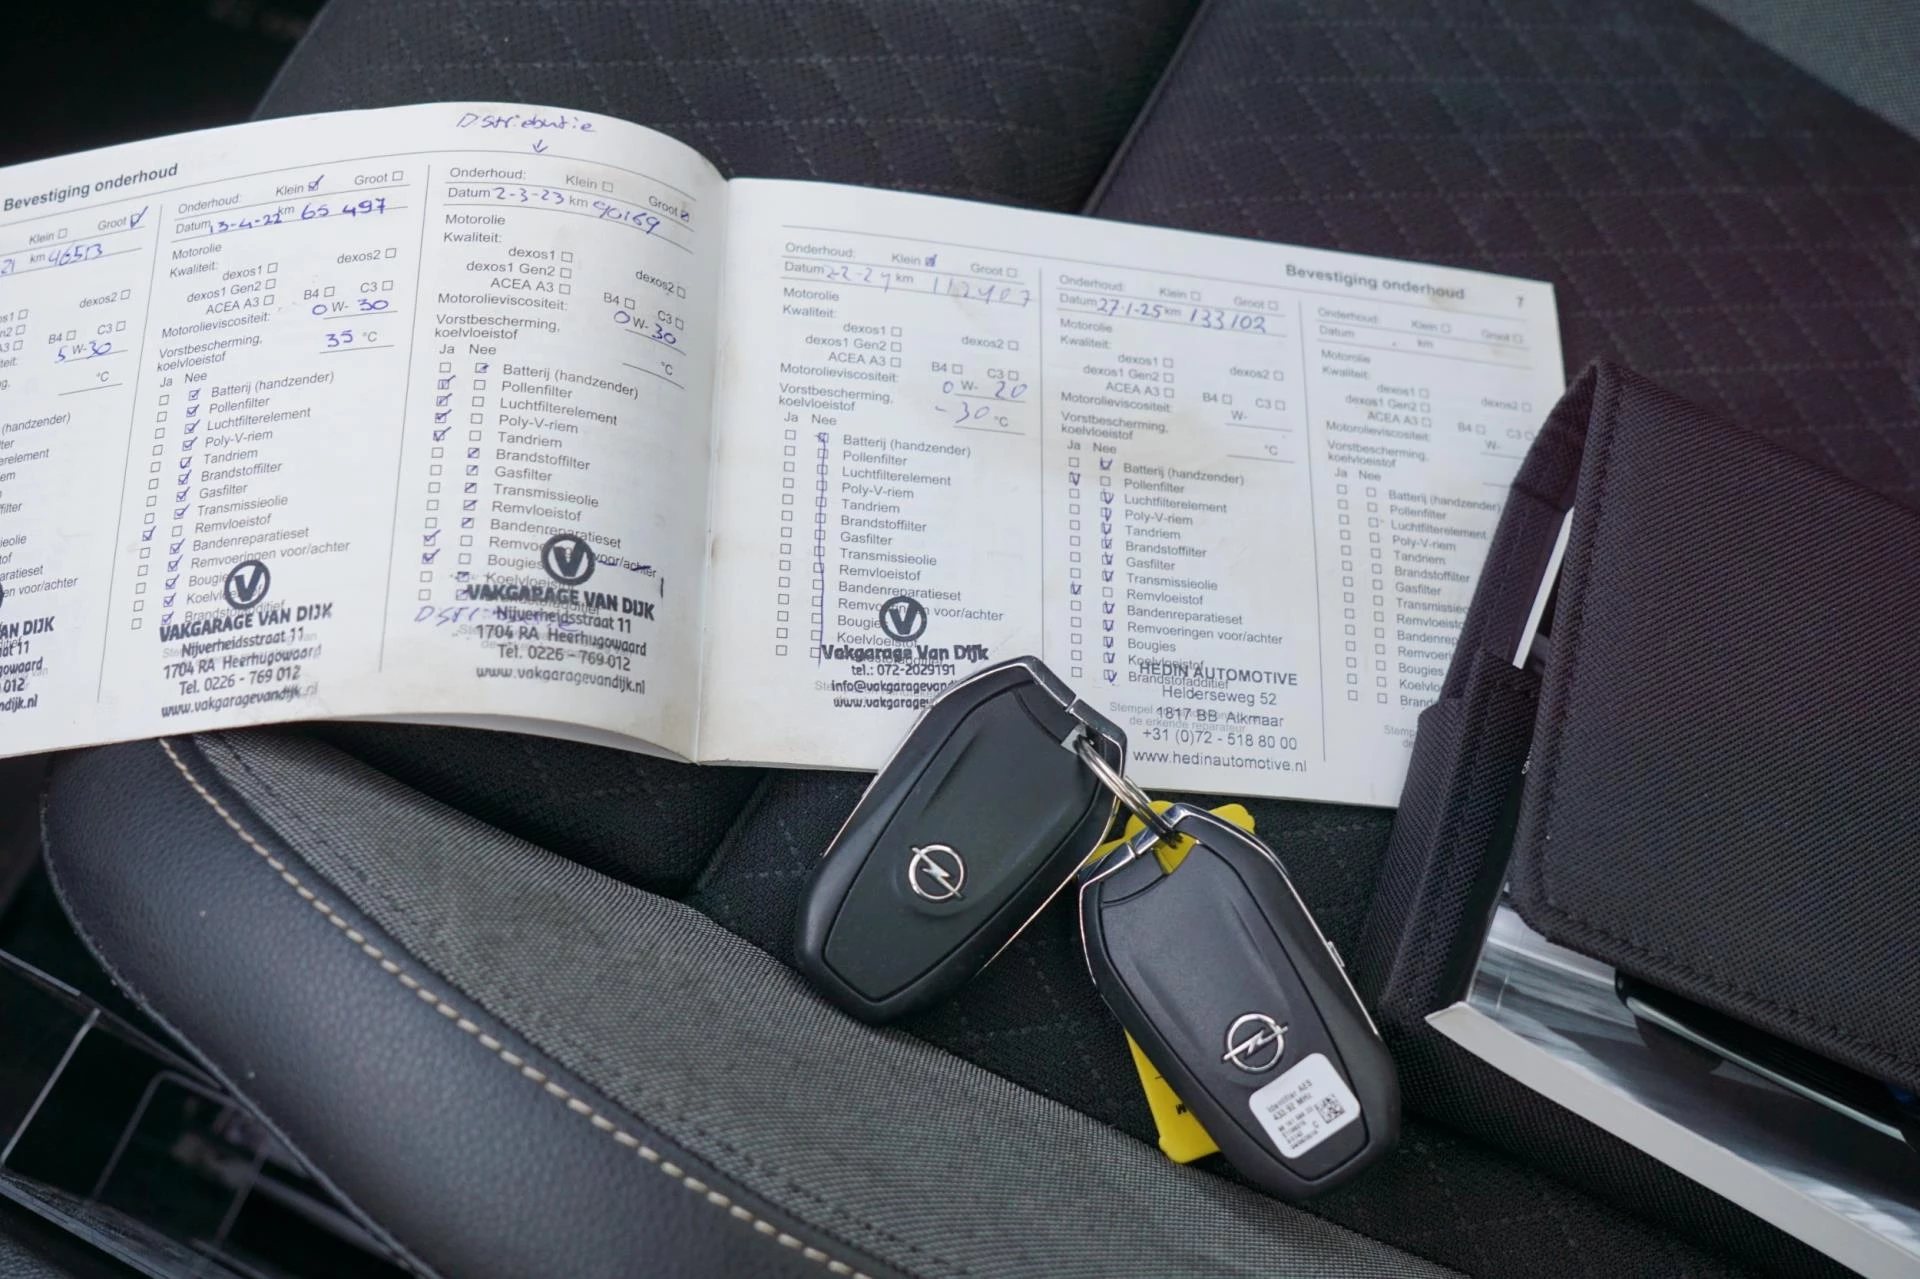 Dstributie
Bevestiging onderhoud
Klein Groot
21 km 46513
dexos2
B4 C3
5 W-30
°C
(handzender)
VAN DIJK
012
dijk.nl
Onderhoud: Klein Groot
Datum 13-4-22 km 65 497
Motorolie
Kwaliteit:
dexos1 dexos2
dexos1 Gen2
ACEA A3 B4 C3
Motorolieviscositeit: 0 W- 30
Vorstbescherming,
koelvloeistof 35 °C
Ja Nee
Batterij (handzender)
Pollenfilter
Luchtfilterelement
Poly-V-riem
Tandriem
Brandstoffilter
Gasfilter
Transmissieolie
Remvloeistof
Bandenreparatieset
Remvoeringen voor/achter
Bougie
Koelvloe
Brandstofadditief
VAKGARAGE VAN DIJK
Nijverheidsstraat 11
1704 RA Heerhugowaard
Tel. 0226 - 769 012
www.vakgaragevandijk.nl
Onderhoud: Klein Groot
Datum 2-3-23 km 90169
Motorolie
Kwaliteit:
dexos1
dexos1 Gen2 dexos2
ACEA A3 B4 C3
Motorolieviscositeit: 0 W- 30
Vorstbescherming,
koelvloeistof °C
Ja Nee
Batterij (handzender)
Pollenfilter
Luchtfilterelement
Poly-V-riem
Tandriem
Brandstoffilter
Gasfilter
Transmissieolie
Remvloeistof
Bandenreparatieset
Remvoe voor/achter
Bougies
Koelvloeistof
VAKGARAGE VAN DIJK
Nijverheidsstraat 11
1704 RA Heerhugowaard
Tel. 0226 - 769 012
www.vakgaragevandijk.nl
Bevestiging onderhoud 7
Onderhoud: Klein Groot
Datum 2-2-24 km 112407
Motorolie
Kwaliteit:
dexos1
dexos1 Gen2 dexos2
ACEA A3 B4 C3
Motorolieviscositeit: 0 W- 20
Vorstbescherming,
koelvloeistof -30 °C
Ja Nee
Batterij (handzender)
Pollenfilter
Luchtfilterelement
Poly-V-riem
Tandriem
Brandstoffilter
Gasfilter
Transmissieolie
Remvloeistof
Bandenreparatieset
Remvoeringen voor/achter
Bougie
Koelvloeistof
Vakgarage Van Dijk
tel.: 072-2029191
info@vakgaragevandi
www.vakgarage
Onderhoud: Klein Groot
Datum 27-1-25 km 133102
Motorolie
Kwaliteit:
dexos1
dexos1 Gen2 dexos2
ACEA A3 B4 C3
Motorolieviscositeit: W-
Vorstbescherming,
koelvloeistof °C
Ja Nee
Batterij (handzender)
Pollenfilter
Luchtfilterelement
Poly-V-riem
Tandriem
Brandstoffilter
Gasfilter
Transmissieolie
Remvloeistof
Bandenreparatieset
Remvoeringen voor/achter
Bougies
Koelvloeistof
Brandstofadditief
HEDIN AUTOMOTIVE
Helderseweg 52
1817 BB Alkmaar
Stempel
de erkende reparateur
+31 (0)72 - 518 80 00
www.hedinautomotive.nl
Onderhoud: Klein Groot
Datum km
Motorolie
Kwaliteit:
dexos1
dexos1 Gen2 dexos2
ACEA A3 B4 C3
Motorolieviscositeit: W-
Vorstbescherming,
koelvloeistof
Ja Nee
Batterij (handzender)
Pollenfilter
Luchtfilterelement
Poly-V-riem
Tandriem
Brandstoffilter
Gasfilter
Transmissie
Remvloeisto
Bandenrep
Remvoerin
Bougies
Koelvlo
Brand
Stempe
de
Identifier AES
433.92 MHz